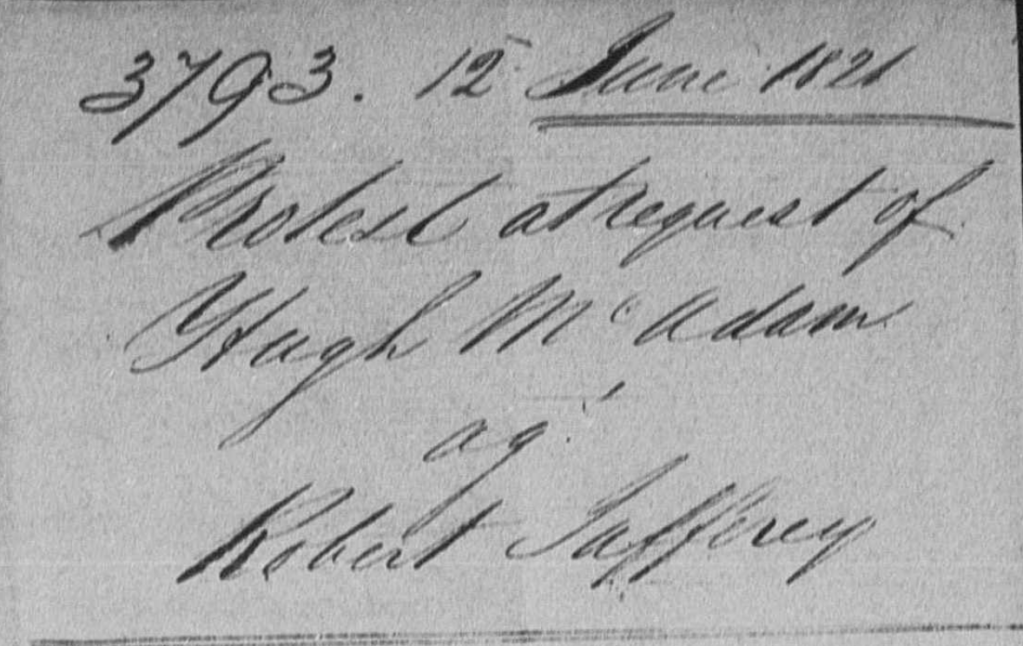 3793. 12 June 1821
Protest at request of
Hugh Mc Adam
ag.t
Robert Jafferey